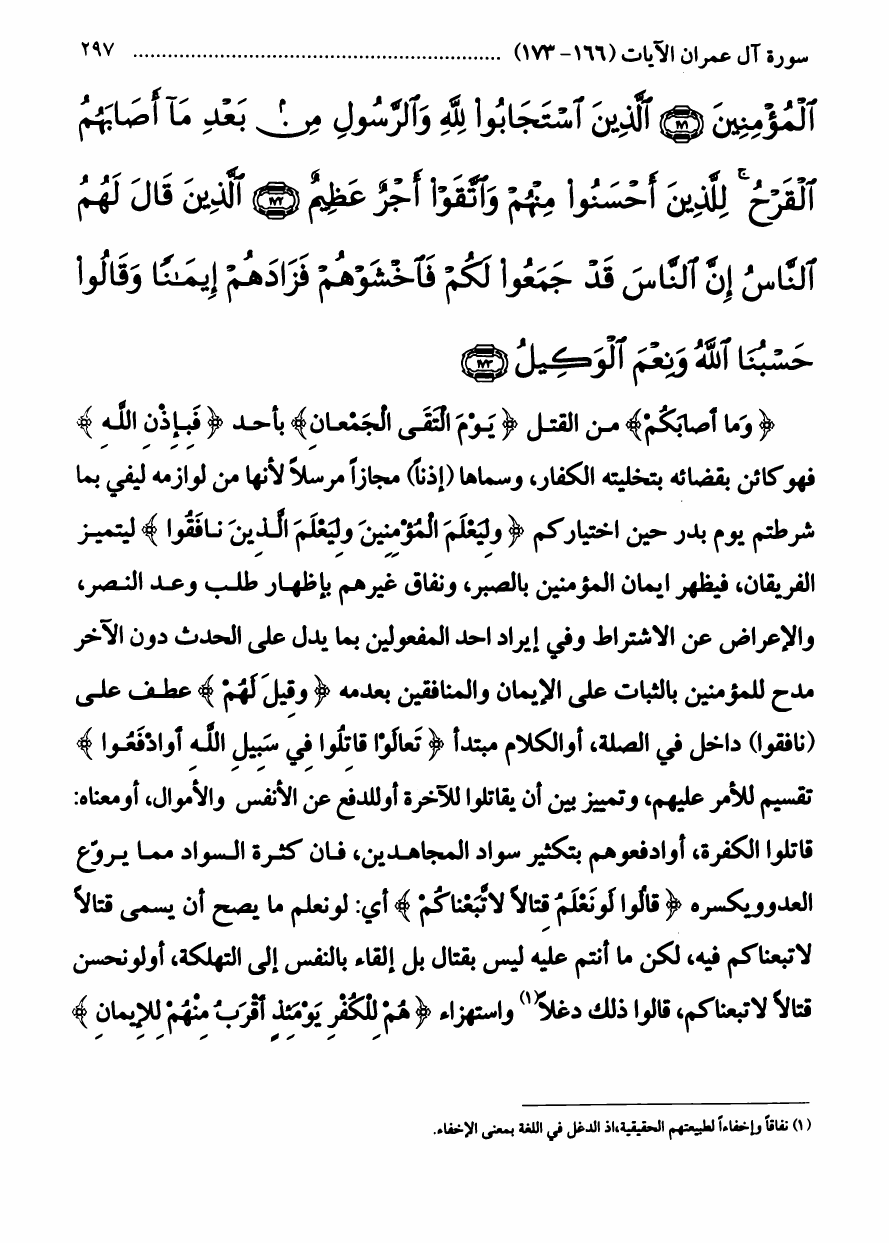 سورة آل عمران الآيات (١٦٦- ١٧٣) ................................................................ ٢٩٧
ٱلْمُؤْمِنِينَ ﴿١٧١﴾ ٱلَّذِينَ ٱسْتَجَابُوا۟ لِلَّهِ وَٱلرَّسُولِ مِنۢ بَعْدِ مَآ أَصَابَهُمُ
ٱلْقَرْحُ ۚ لِلَّذِينَ أَحْسَنُوا۟ مِنْهُمْ وَٱتَّقَوْا۟ أَجْرٌ عَظِيمٌ ﴿١٧٢﴾ ٱلَّذِينَ قَالَ لَهُمُ
ٱلنَّاسُ إِنَّ ٱلنَّاسَ قَدْ جَمَعُوا۟ لَكُمْ فَٱخْشَوْهُمْ فَزَادَهُمْ إِيمَـٰنًا وَقَالُوا۟
حَسْبُنَا ٱللَّهُ وَنِعْمَ ٱلْوَكِيلُ ﴿١٧٣﴾
﴿ وَما أصابَكُمْ﴾ من القتل ﴿ يَوْمَ الْتَقَى الْجَمْعانِ﴾ بأحد ﴿ فَبِإذْنِ اللَّهِ ﴾
فهو كائن بقضائه بتخليته الكفار، وسماها (إذناً) مجازاً مرسلاً لأنها من لوازمه ليفي بما
شرطتم يوم بدر حين اختياركم ﴿ ولِيَعْلَمَ الْمُؤْمِنِينَ ولِيَعْلَمَ الَّذِينَ نافَقُوا ﴾ ليتميز
الفريقان، فيظهر ايمان المؤمنين بالصبر، ونفاق غيرهم بإظهار طلب وعد النصر،
والإعراض عن الاشتراط وفي إيراد احد المفعولين بما يدل على الحدث دون الآخر
مدح للمؤمنين بالثبات على الإيمان والمنافقين بعدمه ﴿ وقِيلَ لَهُمْ ﴾ عطف على
(نافقوا) داخل في الصلة، أوالكلام مبتدأ ﴿ تَعالَوْا قاتِلُوا فِي سَبِيلِ اللَّهِ أوادْفَعُوا ﴾
تقسيم للأمر عليهم، وتمييز بين أن يقاتلوا للآخرة أوللدفع عن الأنفس والأموال، أومعناه:
قاتلوا الكفرة، أوادفعوهم بتكثير سواد المجاهدين، فان كثرة السواد مما يروّع
العدوويكسره ﴿ قالُوا لَونَعْلَمُ قِتالاً لاتَّبَعْناكُمْ ﴾ أي: لونعلم ما يصح أن يسمى قتالاً
لاتبعناكم فيه، لكن ما أنتم عليه ليس بقتال بل إلقاء بالنفس إلى التهلكة، أولونحسن
قتالاً لاتبعناكم، قالوا ذلك دغلاً(١) واستهزاء ﴿ هُمْ لِلْكُفْرِ يَوْمَئِذٍ أقْرَبُ مِنْهُمْ لِلإيمانِ ﴾
(١) نفاقاً وإخفاءاً لطبيعتهم الحقيقية،اذ الدغل في اللغة بمعنى الإخفاء.